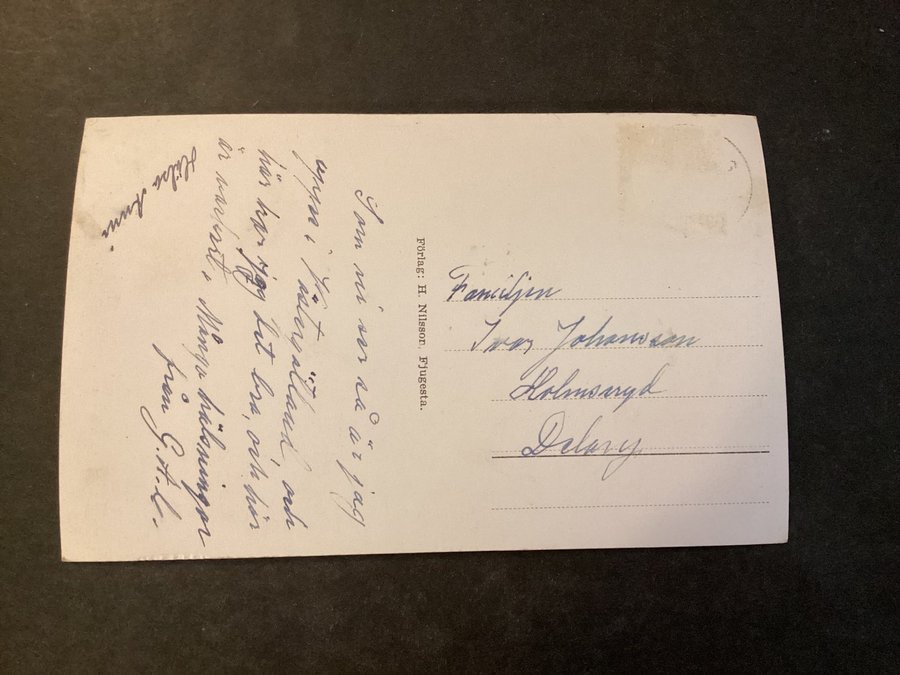 Som ni ser så är jag
uppe i Västergötland och
här har jag det bra, och här
är vackert. Många hälsningar
från G.A.L.
Hälsa Anni
Förlag: H. Nilsson, Fjugesta.
Familjen
Ivar Johansson
Holmseryd
Delary